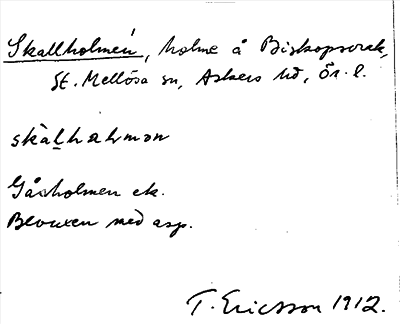 Skallholmen, holme å Biskopsvrak,
St. Mellösa sn, Askers hd, Ör. l.
skàlhɑlmən
Gåsholmen ek.
med asp.
T. Ericsson 1912.